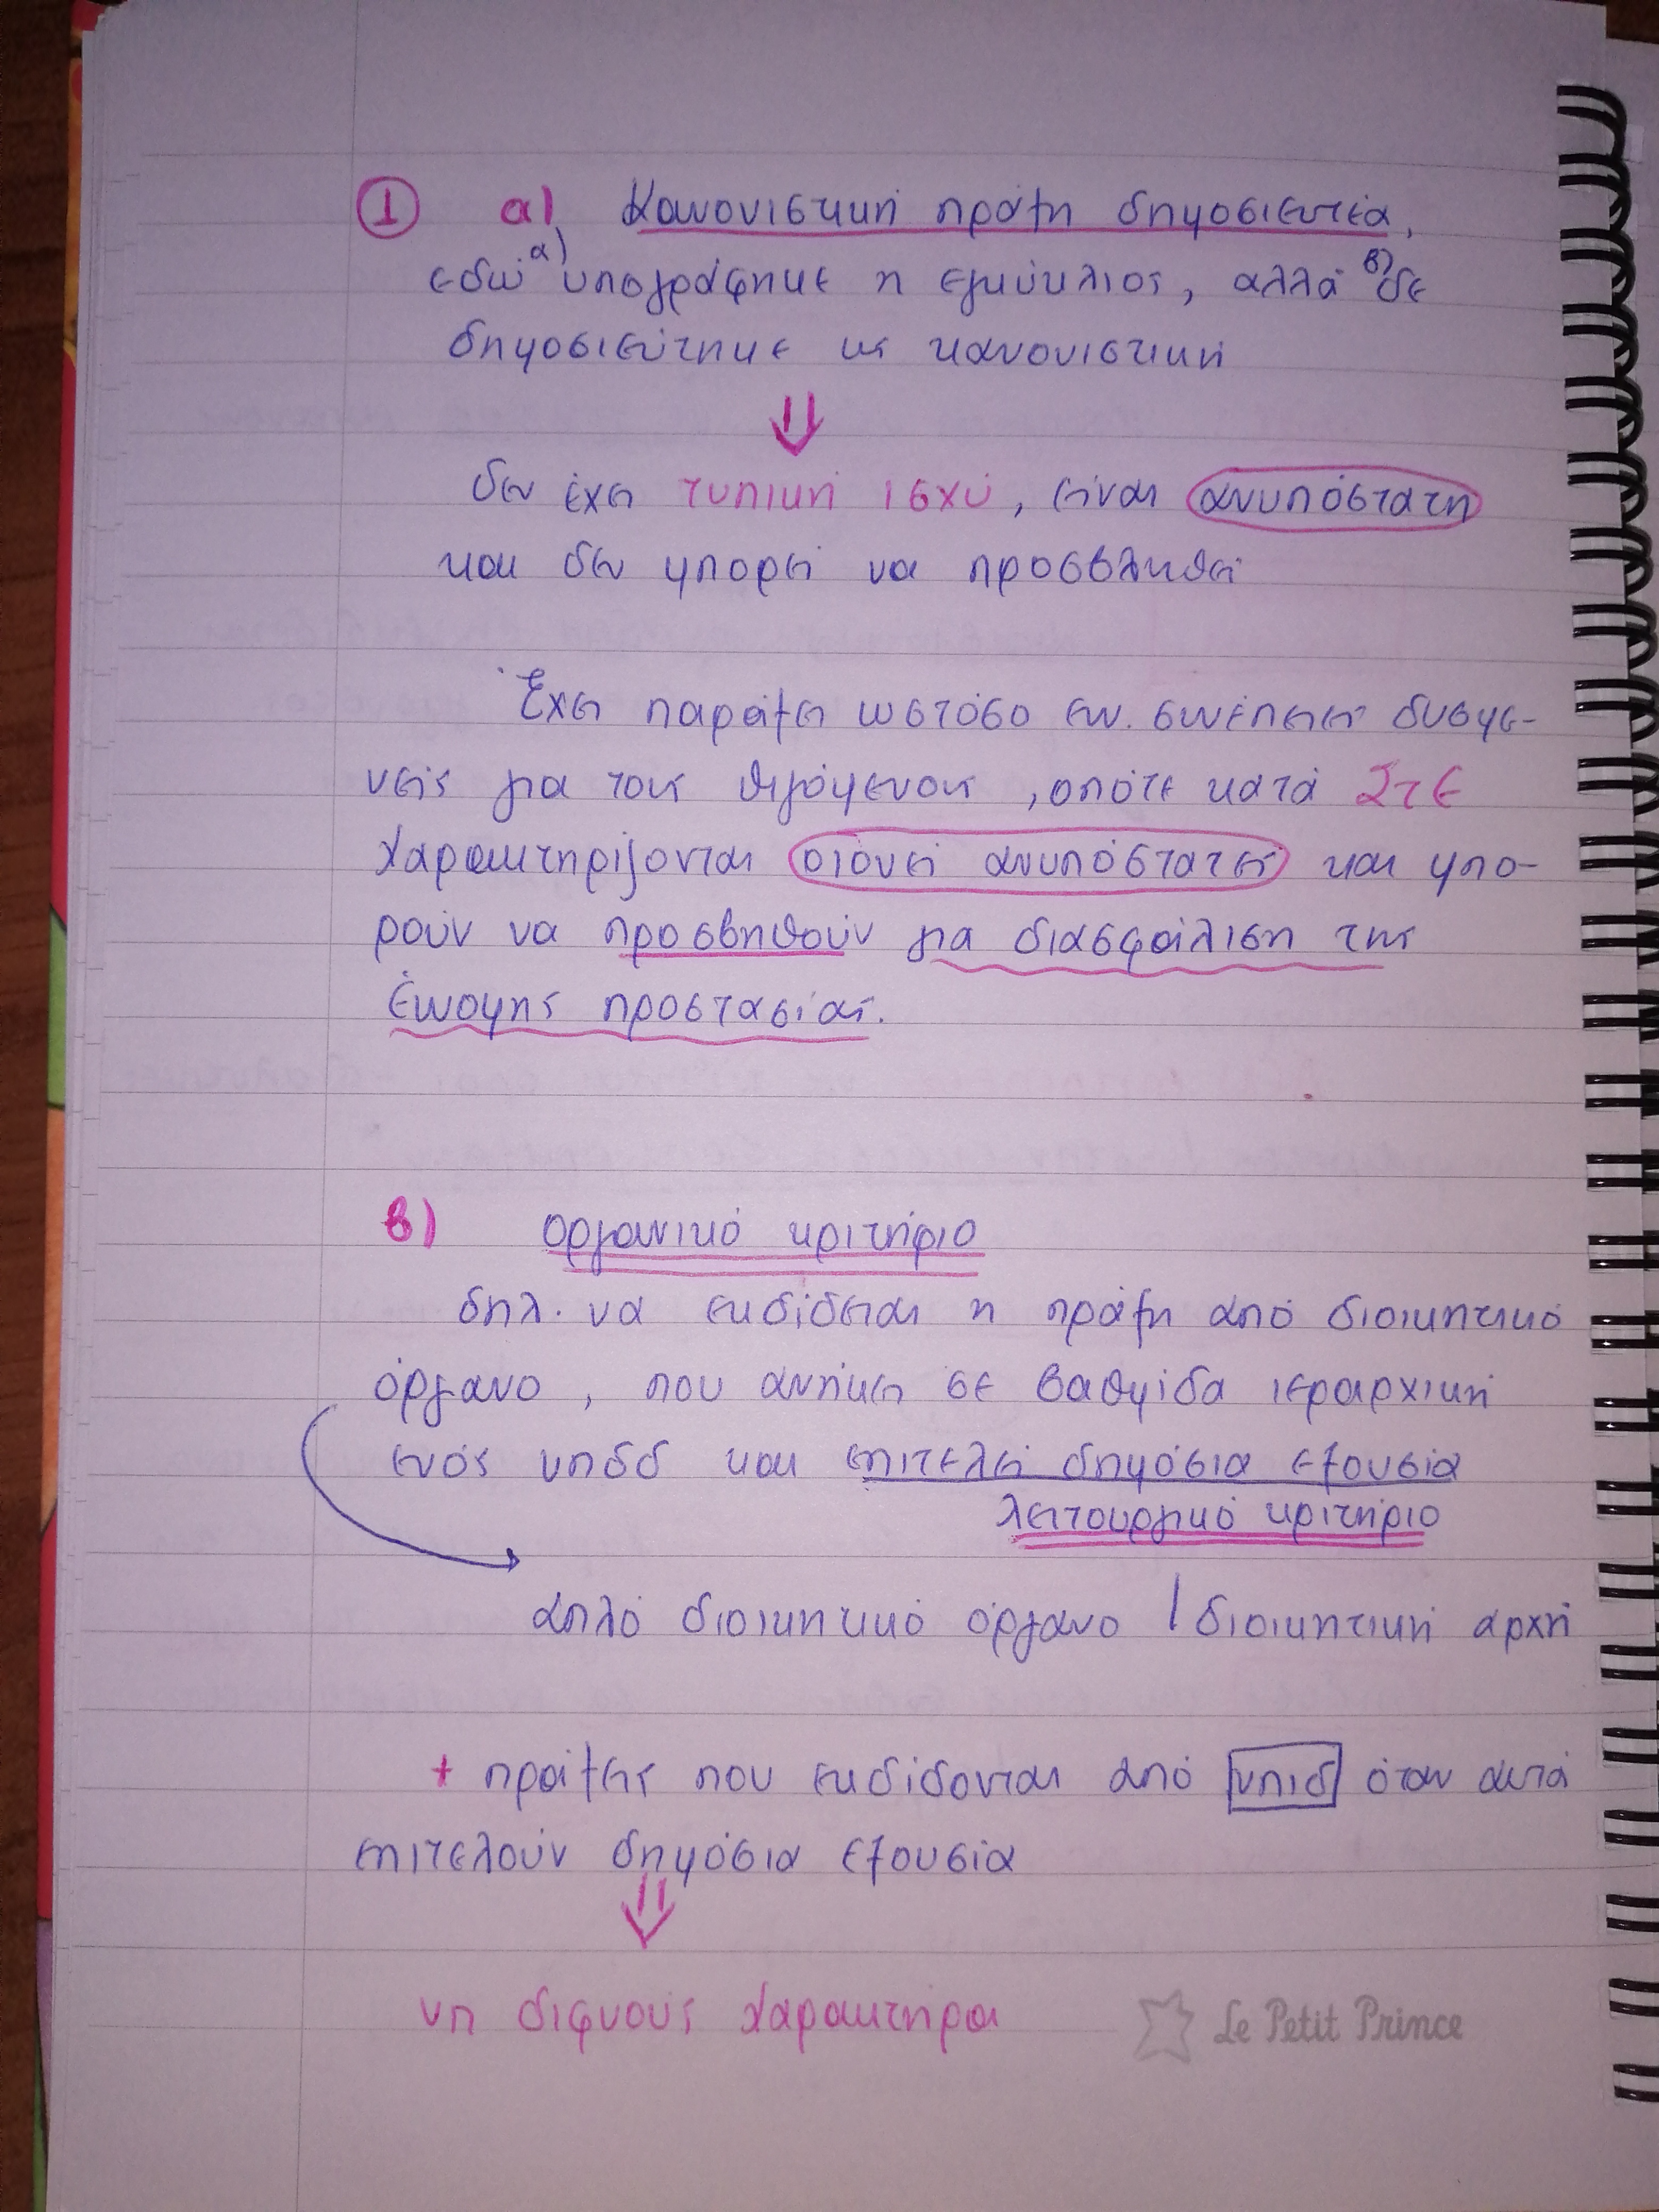 ① α) Κανονιστική πράξη δημοσιευτέα,
εδώ α) υπογράφηκε η εγκύκλιος, αλλά β) δε
δημοσιεύτηκε ως κανονιστική
⇓
δεν έχει τυπική ισχύ, είναι ανυπόστατη
και δεν μπορεί να προσβληθεί
Έχει παράξει ωστόσο εν. συνέπειες δυσμε-
νείς για τους θιγόμενους, οπότε κατά ΣτΕ
χαρακτηρίζονται οιονεί ανυπόστατες και μπο-
ρούν να προσβηθούν για διασφάλιση της
έννομης προστασίας.
β) οργανικό κριτήριο
δηλ. να εκδίδεται η πράξη από διοικητικό
όργανο, που ανήκει σε βαθμίδα ιεραρχική
ενός νπδδ και επιτελεί δημόσια εξουσία
λειτουργικό κριτήριο
απλό διοικητικό όργανο / διοικητική αρχή
+ πράξεις που εκδίδονται από νπιδ όταν αυτά
επιτελούν δημόσια εξουσία
⇓
νπ διφυούς χαρακτήρα
Le Petit Prince